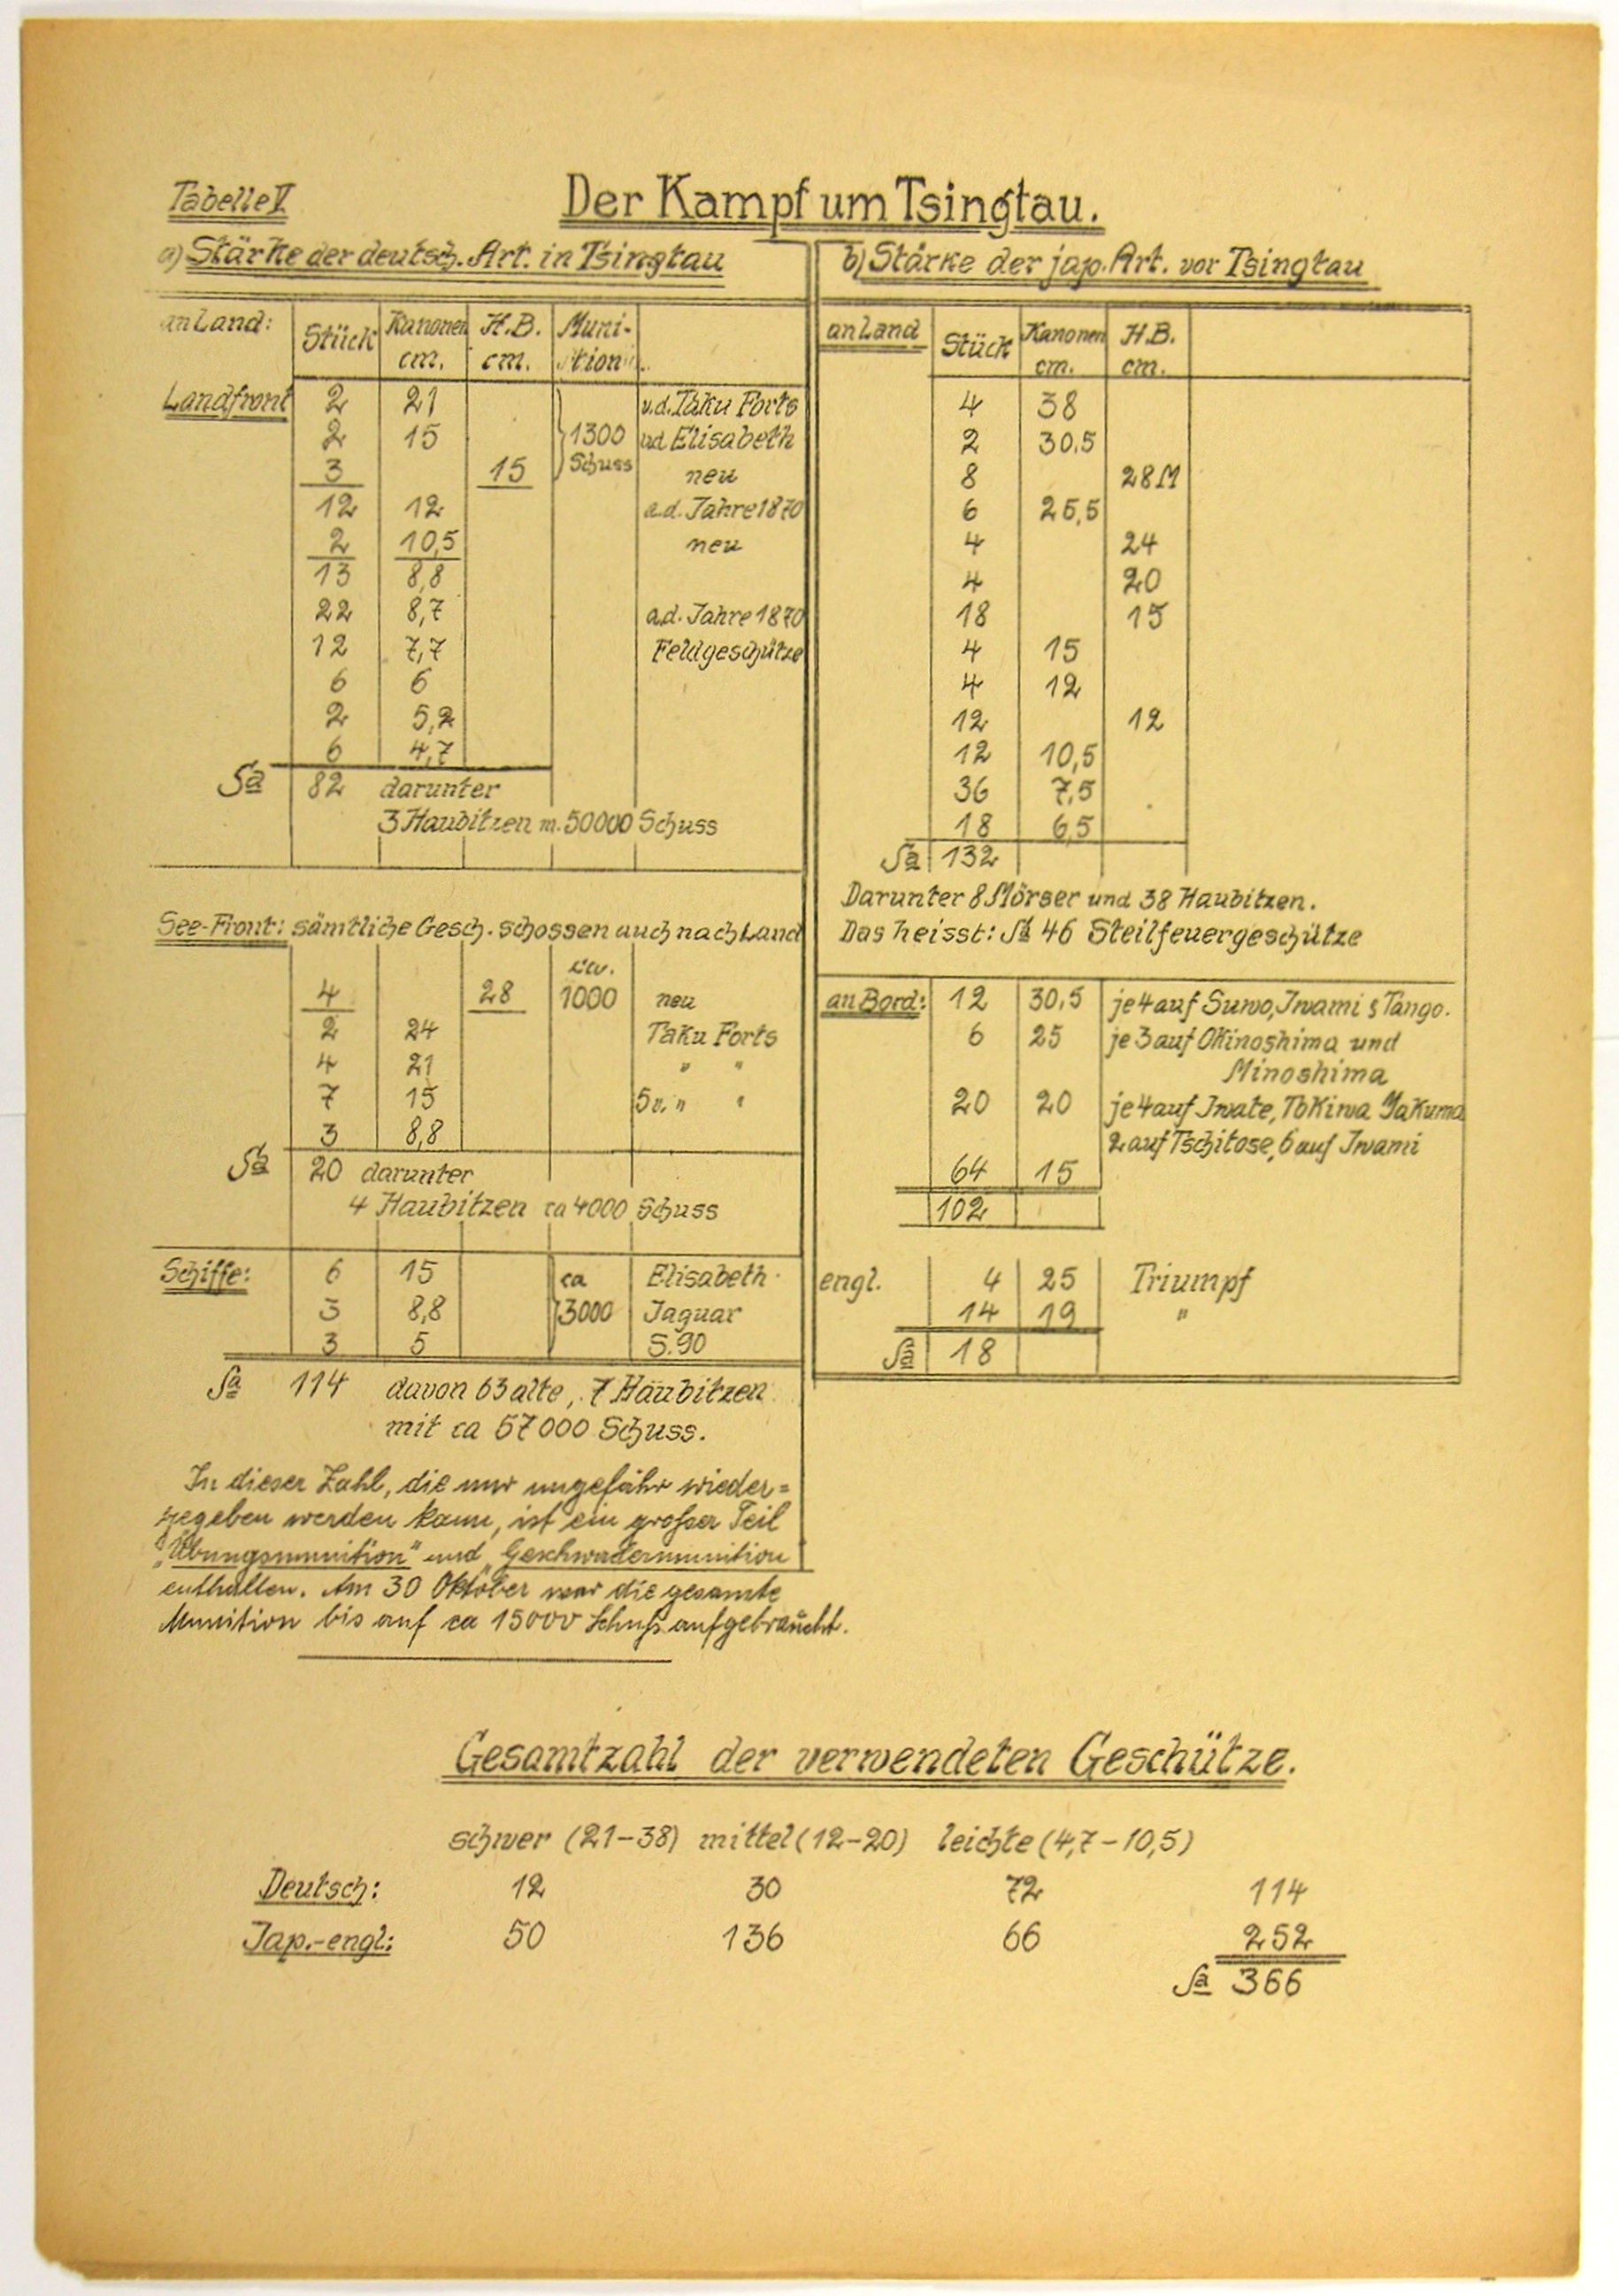 Tabelle V
Der Kampf um Tsingtau.
a) Stärke der deutsch. Art. in Tsingtau
an Land: Stück Kanonen cm. H.B. cm. Muni-tion
Landfront 2 21 v.d. Taku Forts
2 15 1300 v.d. Elisabeth
3 15 Schuss neu
12 12 a.d. Jahre 1870
2 10,5 neu
13 8,8
22 8,7 a.d. Jahre 1870
12 7,7 Feldgeschütze
6 6
2 5,2
6 4,7
Sa 82 darunter
3 Haubitzen m. 50000 Schuss
See-Front: sämtliche Gesch. schossen auch nach Land
4 28 1000 neu
2 24 Taku Forts
4 21 " "
7 15 5 v. " "
3 8,8
Sa 20 darunter
4 Haubitzen ca 4000 Schuss
Schiffe: 6 15 ca Elisabeth
3 8,8 3000 Jaguar
3 5 S.90
Sa 114 davon 63 alte, 7 Haubitzen
mit ca 57000 Schuss.
In dieser Zahl, die nur ungefähr wieder=
gegeben werden kann, ist ein großer Teil
"Übungsmunition" und Geschwadermunition
enthalten. Am 30 Oktober war die gesamte
Munition bis auf ca 15000 Schuß aufgebraucht.
b) Stärke der jap. Art. vor Tsingtau
an Land Stück Kanonen cm. H.B. cm.
4 38
2 30,5
8 28M
6 25,5
4 24
4 20
18 15
4 15
4 12
12 12
12 10,5
36 7,5
18 6,5
Sa 132
Darunter 8 Mörser und 38 Haubitzen.
Das heisst: Sa 46 Steilfeuergeschütze
an Bord: 12 30,5 je 4 auf Suwo, Iwami & Tango.
6 25 je 3 auf Okinoshima und
Minoshima
20 20 je 4 auf Iwate, Tokiwa Yakuma
2 auf Tschitose, 6 auf Iwami
64 15
102
engl. 4 25 Triumpf
14 19 "
Sa 18
Gesamtzahl der verwendeten Geschütze.
schwer (21-38) mittel (12-20) leichte (4,7-10,5)
Deutsch: 12 30 72 114
Jap.-engl: 50 136 66 252
Sa 366